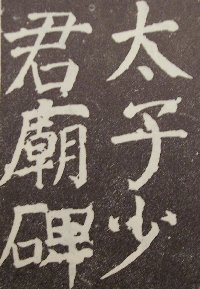 太子少
君廟碑